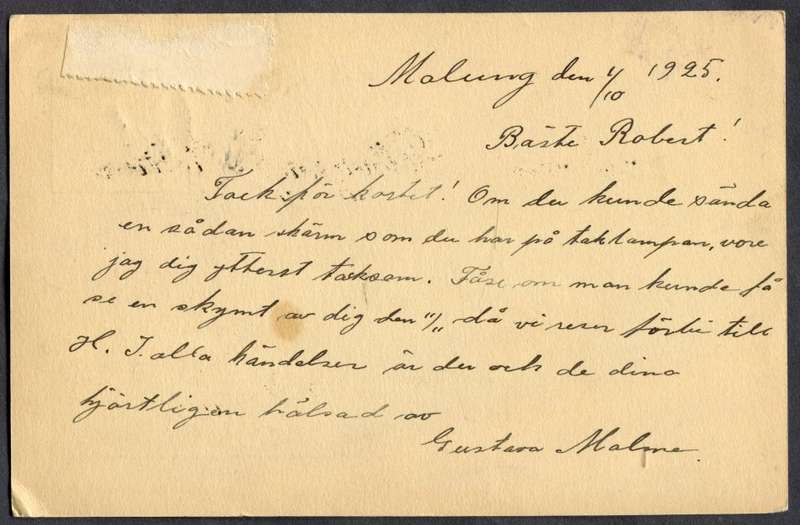 Malung den 4/10 1925.
Bäste Robert!
Tack för kortet! Om du kunde sända
en sådan skärm som du har på taklampan, vore
jag dig ytterst tacksam. Få se om man kunde få
se en skymt av dig den 11/11 då vi reser förbi till
H. I alla händelser är du och de dina
hjärtligen hälsad av
Gustava Malme.